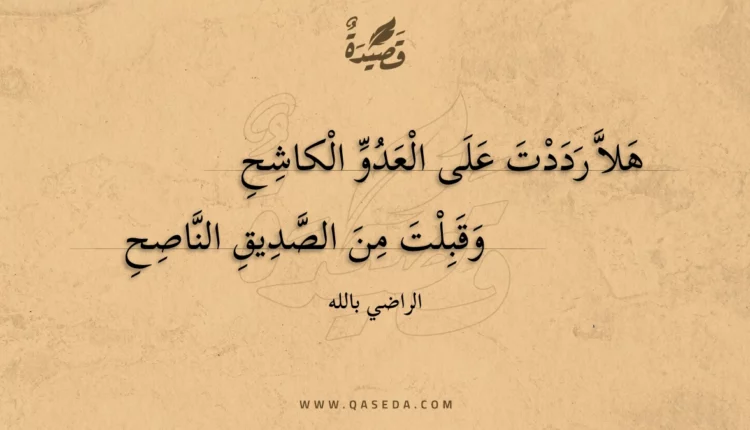 قَصِيدَةٌ
هَلاَّ رَدَدْتَ عَلَى الْعَدُوِّ الْكاشِحِ
وَقَبِلْتَ مِنَ الصَّدِيقِ النَّاصِحِ
الراضي بالله
WWW.QASEDA.COM